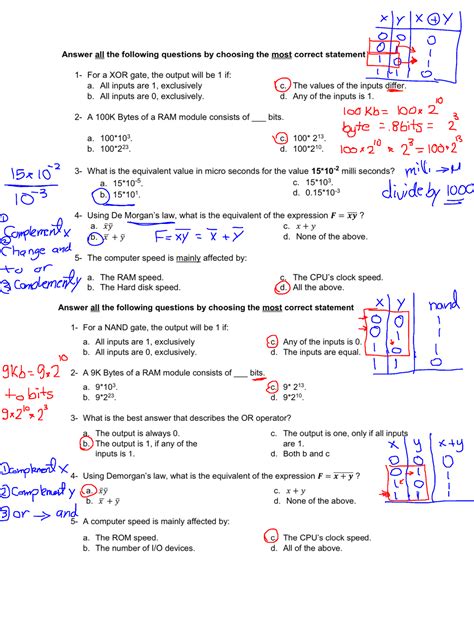 x | y | x ⊕ y
0 0 0
0 1 1
1 0 1
1 1 0
Answer all the following questions by choosing the most correct statement
1- For a XOR gate, the output will be 1 if:
a. All inputs are 1, exclusively
b. All inputs are 0, exclusively.
c. The values of the inputs differ.
d. Any of the inputs is 1.
100Kb = 100 x 2^10
byte = .8bits = 2^3
100 x 2^10 x 2^3 = 100*2^13
2- A 100K Bytes of a RAM module consists of ___ bits.
a. 100*10^3.
b. 100*2^23.
c. 100* 2^13.
d. 100*2^10.
15 x 10^-2
10^-3
3- What is the equivalent value in micro seconds for the value 15*10^-2 milli seconds?
milli → M
divide by 1000
a. 15*10^-5.
b. 15*10^1.
c. 15*10^3.
d. 0.15*10^-3
4- Using De Morgan's law, what is the equivalent of the expression F = x̅y̅ ?
a. x̅y̅
b. x̅ + y̅
c. x + y
d. None of the above.
F = x̅y̅ = x̅ + y̅
① Complement x
② Change and to or
③ Complement y
5- The computer speed is mainly affected by:
a. The RAM speed.
b. The Hard disk speed.
c. The CPU's clock speed.
d. All the above.
Answer all the following questions by choosing the most correct statement
1- For a NAND gate, the output will be 1 if:
a. All inputs are 1, exclusively
b. All inputs are 0, exclusively.
c. Any of the inputs is 0.
d. The inputs are equal.
x | y | nand
0 0 1
0 1 1
1 0 1
1 1 0
9Kb = 9 x 2^10
to bits
9 x 2^10 x 2^3
2- A 9K Bytes of a RAM module consists of ___ bits.
a. 9*10^3.
b. 9*2^23.
c. 9* 2^13.
d. 9*2^10.
3- What is the best answer that describes the OR operator?
a. The output is always 0.
b. The output is 1, if any of the
inputs is 1.
c. The output is one, only if all inputs
are 1.
d. Both b and c
x | y | x+y
0 0 0
0 1 1
1 0 1
1 1 1
① complement x
② Complement y
③ or → and
4- Using Demorgan's law, what is the equivalent of the expression F = x̅ + y̅ ?
a. x̅y̅
b. x̅ + y̅
c. x + y
d. None of the above.
5- A computer speed is mainly affected by:
a. The ROM speed.
b. The number of I/O devices.
c. The CPU's clock speed.
d. All of the above.